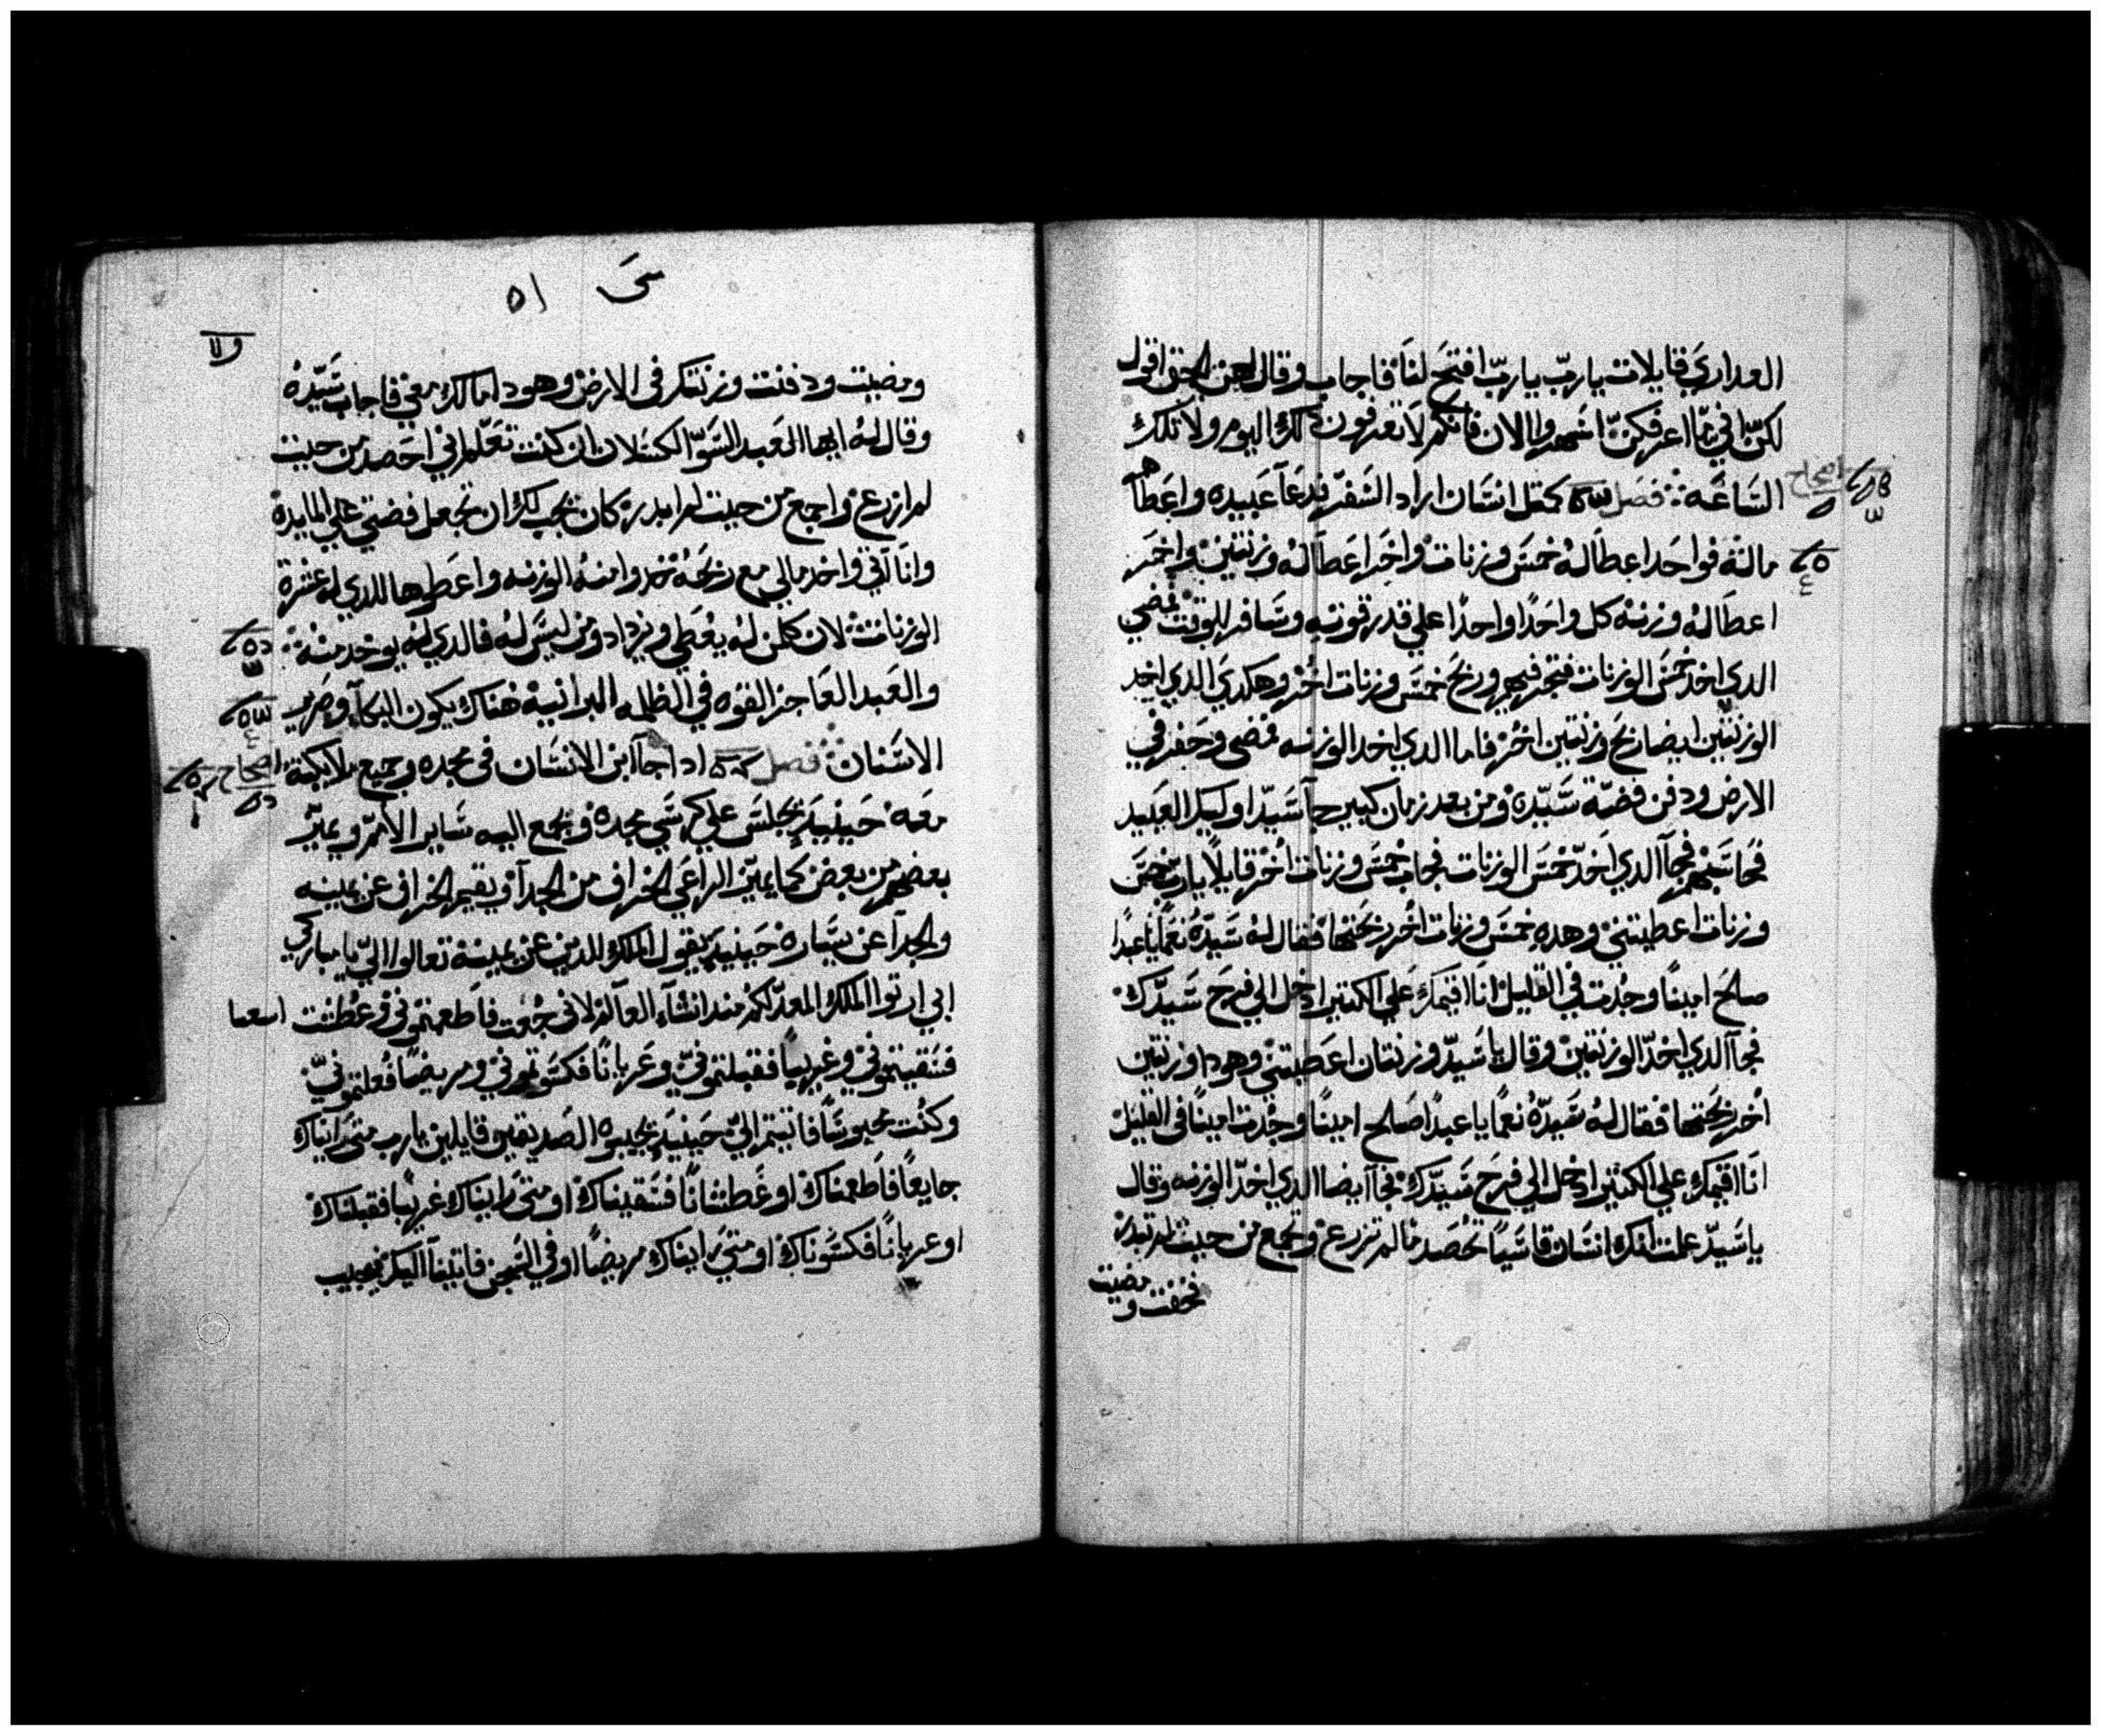 العداري قايلات يارب يارب افتح لنا فاجاب وقال لهن الحق اقول
لكن اني ما اعرفكن اسهروا الان فانكم لا تعرفون دلك اليوم ولا تلك
الساعة فصل كمتل انسان اراد السفر فدعا عبيده واعطاهم
اصحاح
ماله فواحد اعطا له خمس وزنات واخر اعطا له وزنتين واخر
اعطا له وزنه كل واحدا واحدا علي قدر قوته وسافر للوقت فمضي
الدي اخد خمس الوزنات فتجر فيهم وربح خمس وزنات اخر وهكدي الدي اخد
الوزنتين ايضا ربح وزنتين اخر فاما الدي اخد الوزنه فمضي وحفر في
الارض ودفن فضة سيده ومن بعد زمان كبير جا سيد اوليك العبيد
فحاسبهم فجا الدي اخد خمس الوزنات فجاب خمس وزنات اخر قايلا يارب خمس
وزنات اعطيتني وهده خمس وزنات اخر ربحتها فقال له سيده نعما يا عبدا
صالح امينا وجدت في القليل انا اقيمك علي الكتير ادخل الي فرح سيدك
فجا الدي اخد الوزنتين وقال يا سيد وزنتان اعطيتني وهودا وزنتين
اخر ربحتها فقال له سيده نعما يا عبدا صالح امينا وجدت امينا في القليل
انا اقيمك علي الكتير ادخل الي فرح سيدك فجا ايضا الدي اخد الوزنه وقال
يا سيد علمت انك انسان قاسيا تحصد ما لم تزرع وتجمع من حيت لم تبدر
فخفت ومضيت
متى ٥١
ومضيت ودفنت وزنتك في الارض وهودا مالك معي فاجاب سيده
وقال له ايها العبد السوا الكسلان ان كنت تعلم اني احصد من حيت
لم ازرع واجمع من حيت لم ابدر كان يجب لك ان تجعل فضتي علي المايدة
وانا اتي واخد مالي مع ربحه خدوا منه الوزنه واعطوها للدي له عشرة
الوزنات لان كلمن له يعطي ويزداد ومن ليس له فالدي له يوخد منه
والعبد العاجز القوه في الظلمه البرانية هناك يكون البكا وصرير
الاسنان فصل ادا جا ابن الانسان في مجده وجميع ملايكته
اصحاح
معه حينيد يجلس علي كرسي مجده ويجمع اليه ساير الامم ويميز
بعضهم من بعض كما يميز الراعي الخراف من الجدا ويقيم الخراف عن يمينه
والجدا عن يساره حينيد يقول الملك للدين عن يمينه تعالوا الي يا مباركي
ابي ارتوا الملك المعد لكم مند انشاء العالم لاني جعت فاطعمتموني وعطشت
فسقيتموني وغريبا فقبلتموني وعريانا فكسوتموني ومريضا فعدتموني
وكنت محبوسا فاتيتم الي حينيد يجيبوه الصديقين قايلين يارب متي رايناك
جايعا فاطعمناك او عطشانا فسقيناك او متي رايناك غريبا فقبلناك
او عريانا فكسوناك او متي رايناك مريضا او في السجن فاتينا اليك فيجيب